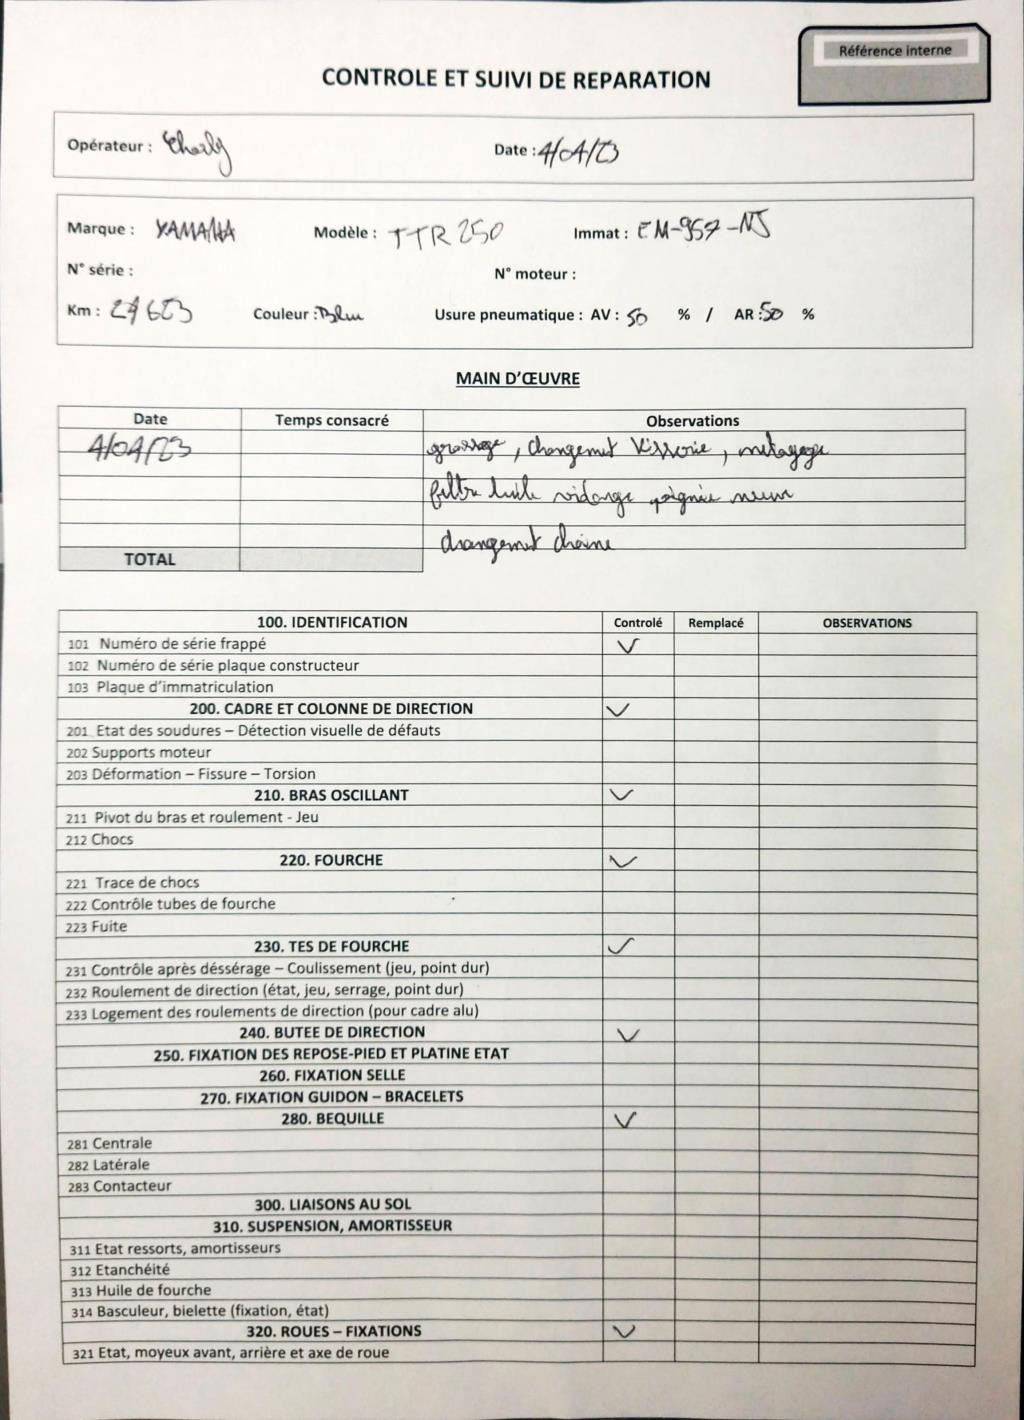 Référence interne
CONTROLE ET SUIVI DE REPARATION
Opérateur : Charly Date : 4/04/23
Marque : YAMAHA Modèle : TTR 250 Immat : EM-957-NJ
N° série : N° moteur :
Km : 27623 Couleur : Bleu Usure pneumatique : AV : 50 % / AR : 50 %
MAIN D'ŒUVRE
Date Temps consacré Observations
4/04/23 graissage, changemet Vissorie, netoyage
filtre huile vidange poignée neuve
changemet chaine
TOTAL
100. IDENTIFICATION Controlé Remplacé OBSERVATIONS
101 Numéro de série frappé ✓
102 Numéro de série plaque constructeur
103 Plaque d'immatriculation
200. CADRE ET COLONNE DE DIRECTION ✓
201 Etat des soudures – Détection visuelle de défauts
202 Supports moteur
203 Déformation – Fissure – Torsion
210. BRAS OSCILLANT ✓
211 Pivot du bras et roulement - Jeu
212 Chocs
220. FOURCHE ✓
221 Trace de chocs
222 Contrôle tubes de fourche
223 Fuite
230. TES DE FOURCHE ✓
231 Contrôle après déssérage – Coulissement (jeu, point dur)
232 Roulement de direction (état, jeu, serrage, point dur)
233 Logement des roulements de direction (pour cadre alu)
240. BUTEE DE DIRECTION ✓
250. FIXATION DES REPOSE-PIED ET PLATINE ETAT
260. FIXATION SELLE
270. FIXATION GUIDON – BRACELETS
280. BEQUILLE ✓
281 Centrale
282 Latérale
283 Contacteur
300. LIAISONS AU SOL
310. SUSPENSION, AMORTISSEUR
311 Etat ressorts, amortisseurs
312 Etanchéité
313 Huile de fourche
314 Basculeur, bielette (fixation, état)
320. ROUES – FIXATIONS ✓
321 Etat, moyeux avant, arrière et axe de roue